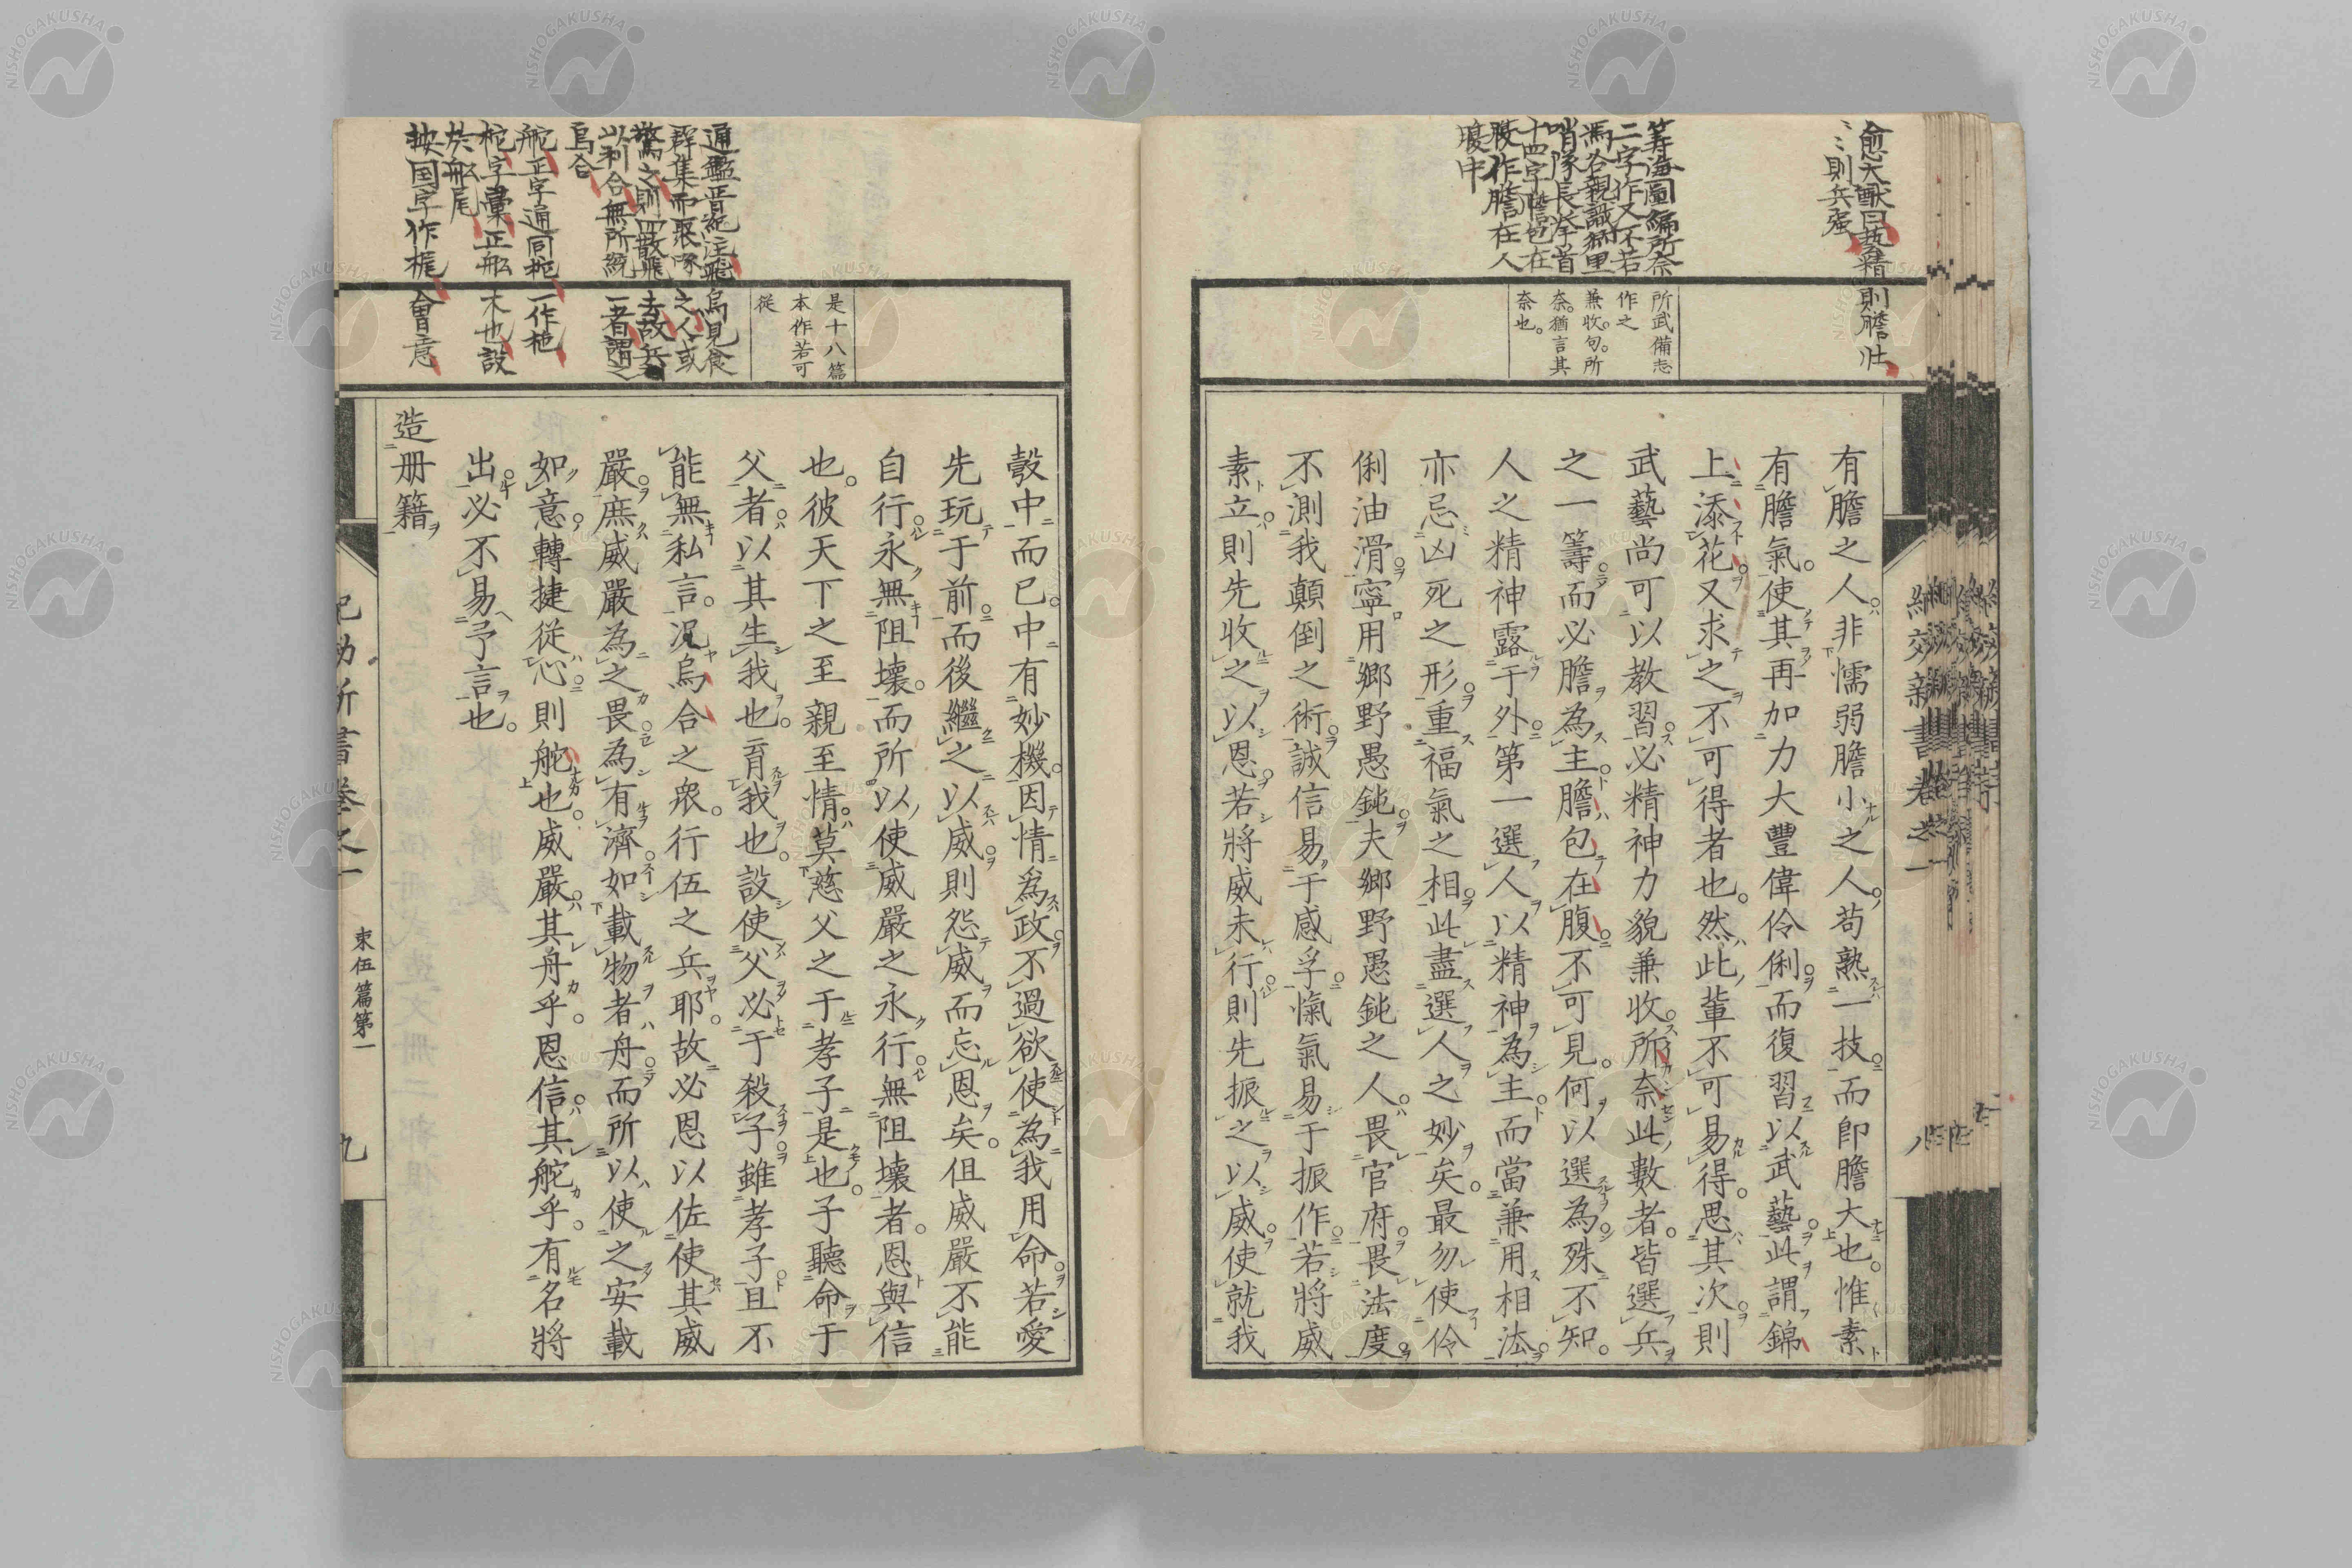 愈大猷曰藝精則膽壮
〻〻則兵强
籌海圖編所奈
二字作又不若
馮谷親識鄉里
哨隊長拳首
十四字膽包在
腹作膽在人
腹中
所武備志
作之
兼收句所
奈猶言其
奈也
有膽之人非懦弱膽小之人苟熟一技而即膽大也惟素
有膽氣使其再加力大豐偉伶俐而復習以武藝此謂錦
上添花又求之不可得者也然此輩不可易得思其次則
武藝尚可以教習必精神力貌兼收所奈此數者皆選兵
之一籌而必膽為主膽包在腹不可見何以選為殊不知
人之精神露于外第一選人以精神為主而當兼用相法
亦忌凶死之形重福氣之相此盡選人之妙矣最勿使伶
俐油滑寧用鄉野愚鈍夫鄉野愚鈍之人畏官府畏法度
不測我顛倒之術誠信易于感孚愾氣易于振作若將威
素立則先收之以恩若將威未行則先振之以威使就我
紀效新書卷之一
八
通鑑晋紀注飛烏見食
群集而聚啄之人或
驚之則四散飛去故兵
以利合無所統一者謂之
烏合
舵正字通同柁一作柂
柁字彙正舩木也設
於舩尾
按国字作梶會意
是十八篇
本作若可
從
彀中而已中有妙機因情為政不過欲使為我用命若愛
先玩于前而後繼之以威則怨威而忘恩矣但威嚴不能
自行永無阻壞而所以使威嚴之永行無阻壞者恩與信
也彼天下之至親至情莫慈父之于孝子是也子聽命于
父者以其生我也育我也設使父必于殺子雖孝子且不
能無私言况烏合之眾行伍之兵耶故必恩以佐使其威
嚴庶威嚴為之畏為有濟如載物者舟而所以使之安載
如意轉捷從心則舵也威嚴其舟乎恩信其舵乎有名將
出必不易予言也
造册籍
紀効新書卷之一
束伍篇第一
九
NISHOGAKUSHA